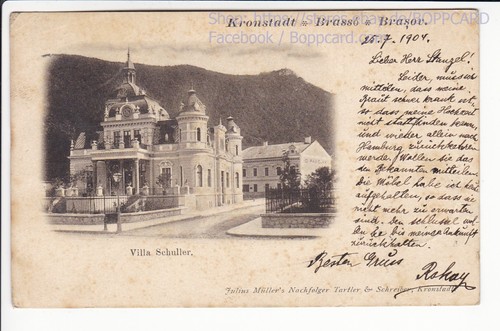 Kronstadt * Brassó * Braşov.
Facebook / Boppcard.com
25./7. 1904.
Lieber Herr Stenzel!
Leider, muss ich
mitteilen, dass meine
Braut schwer krank ist,
so dass meine Hochzeit
nicht stattfinden kann,
und wieder allein nach
Hamburg zurückkehren
werde. Wollen Sie das
den Bekannten mitteilen.
Die Möbel habe ich
aufgehalten, so dass sie
nicht mehr zu erwarten
sind. den Schlüssel
bis meiner Ankunft
zurückhalten.
Besten Gruss
Rokay
Villa Schuller.
Julius Müller's Nachfolger Tartler & Schreiber, Kronstadt